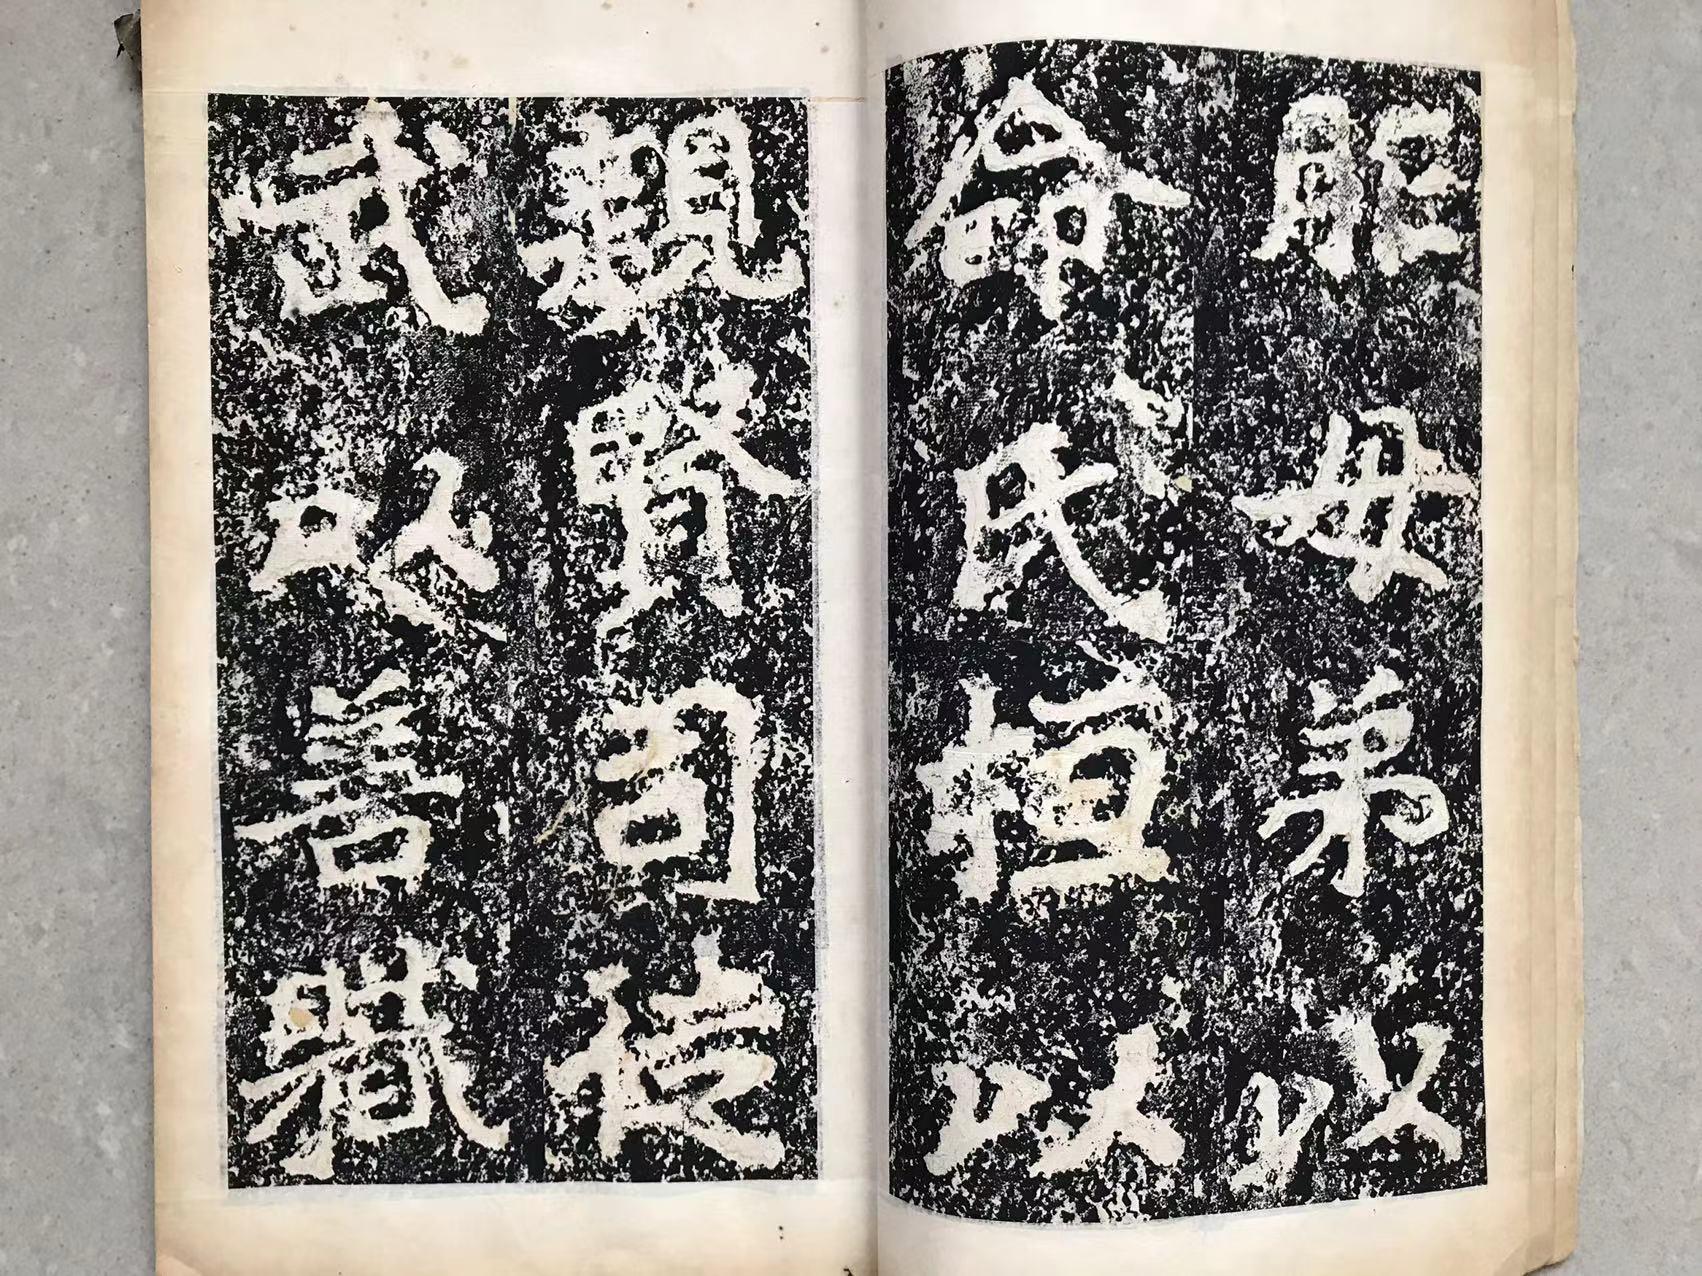 胙母弟以
命氏桓以
親賢司徒
武以善職